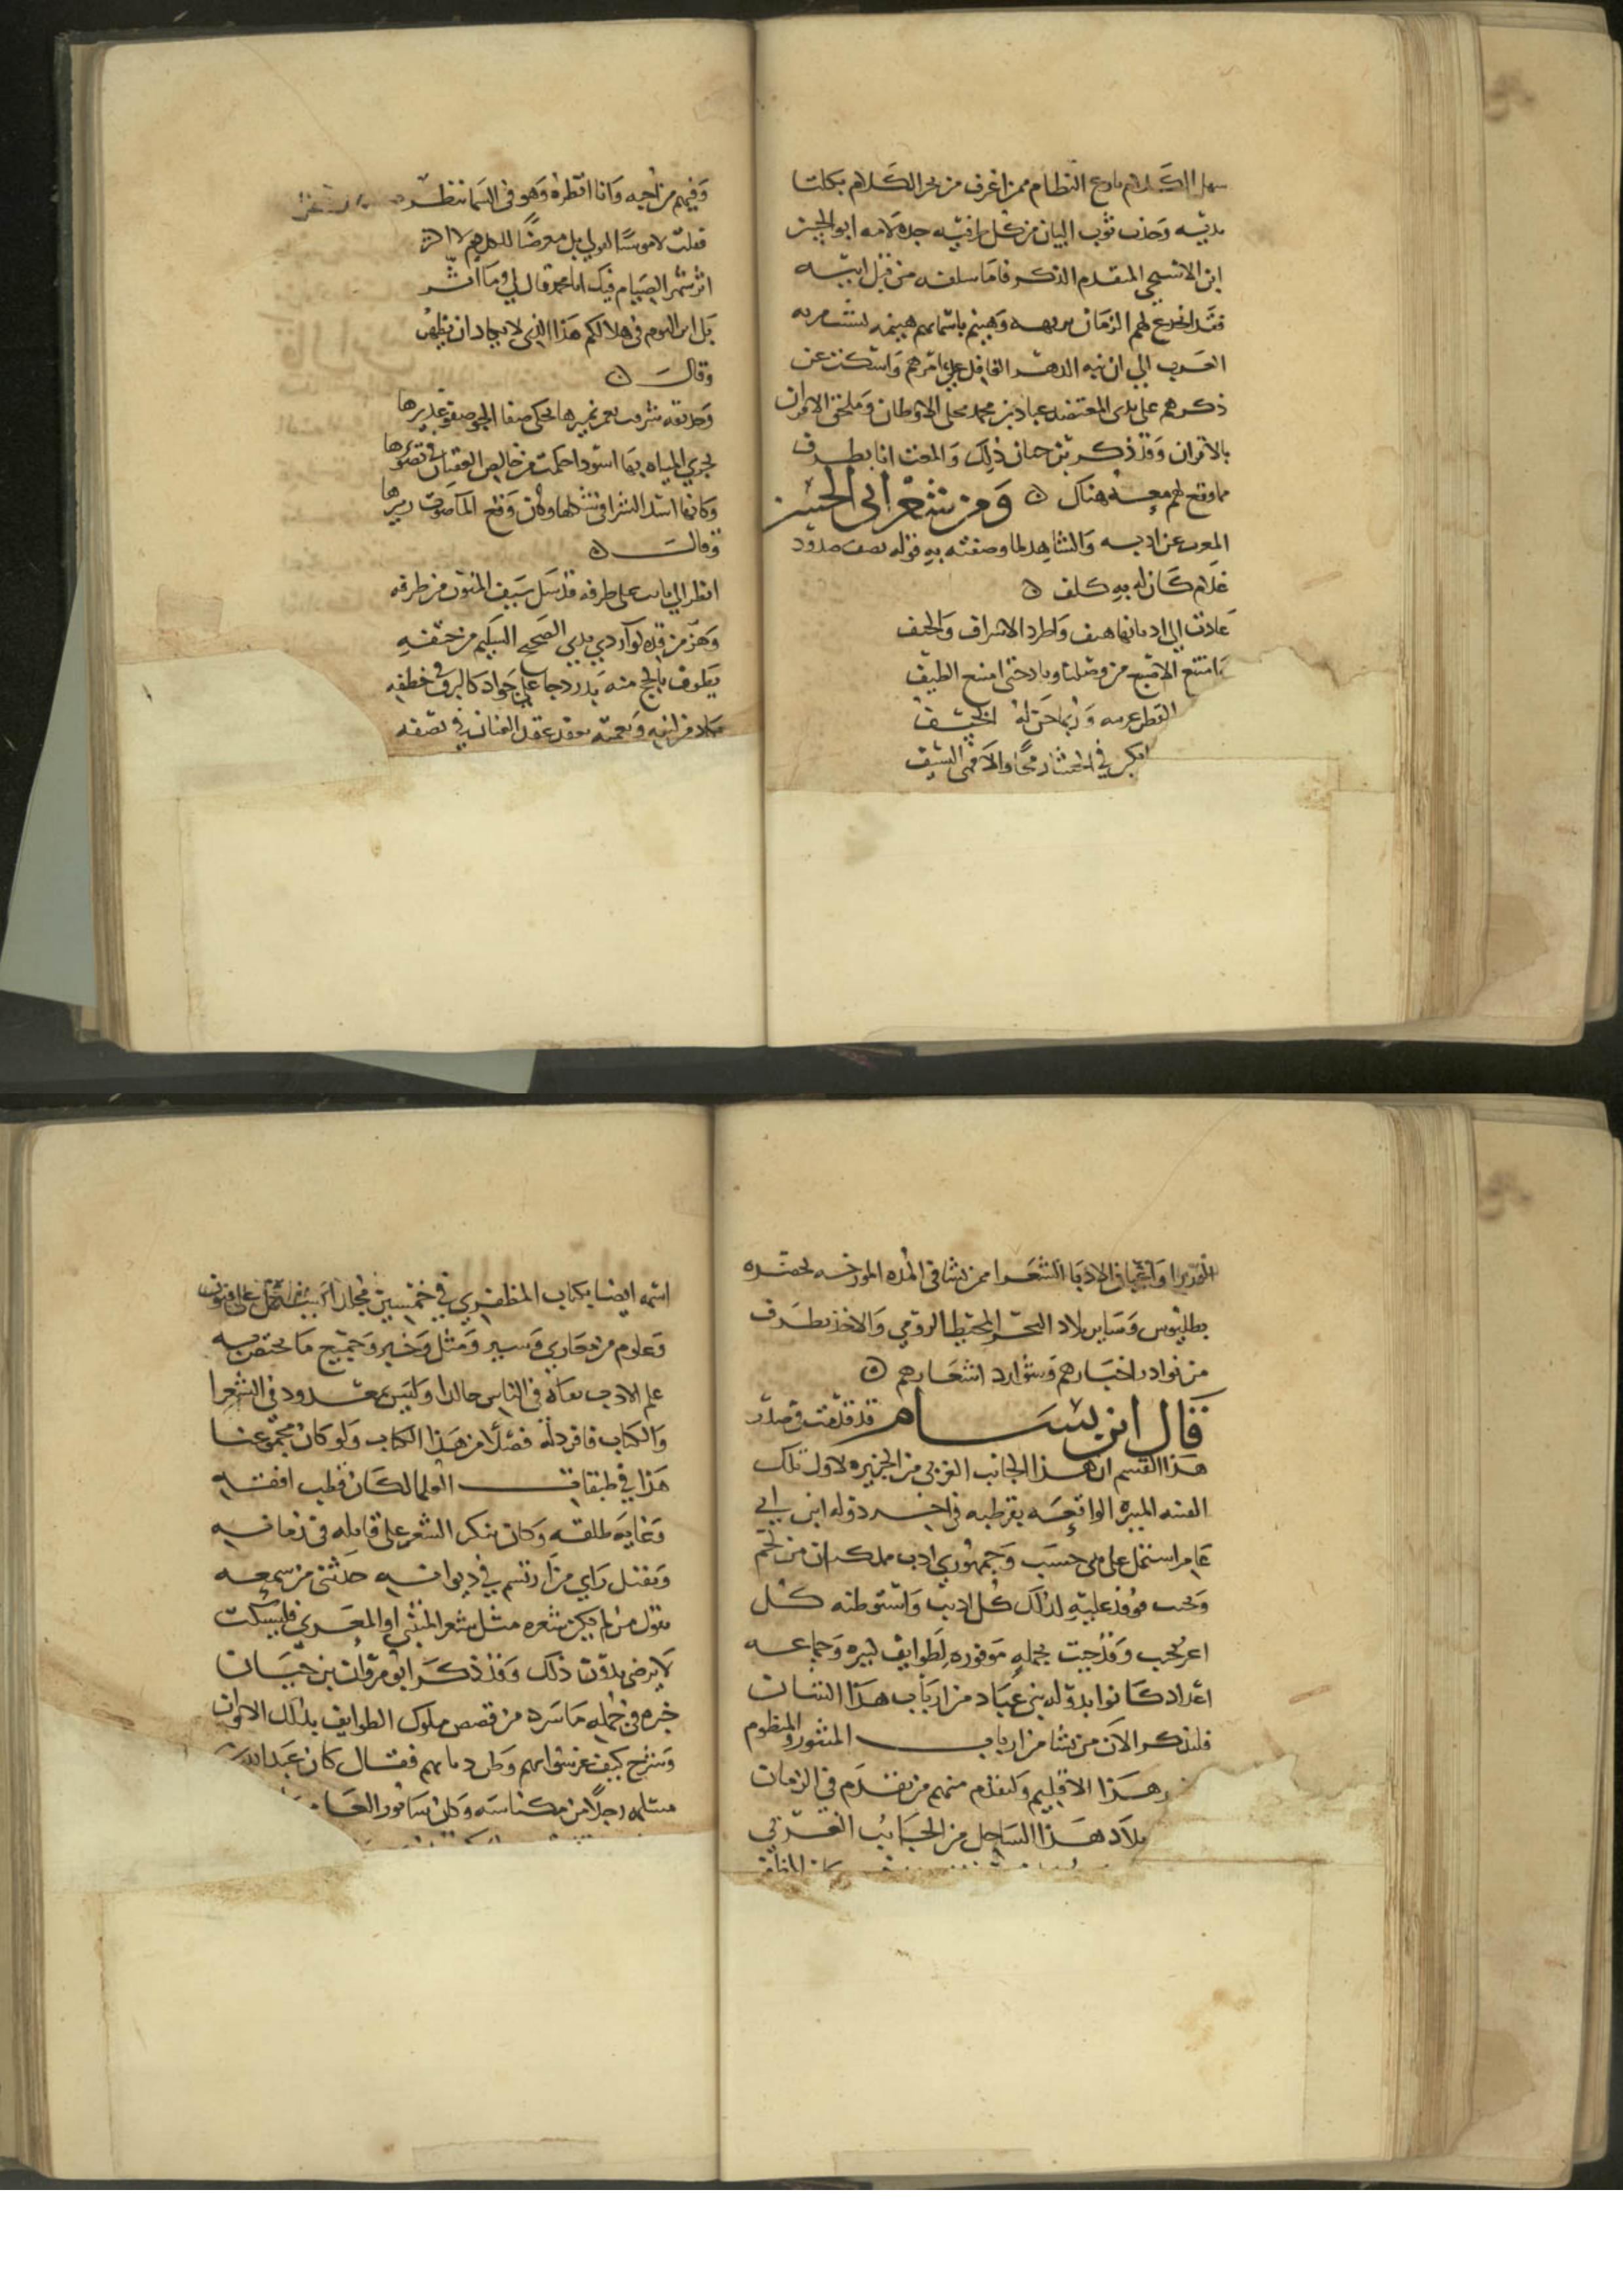 سهل الكلام بارع النظام ممن اغرف من بحر الكلام بكلتا
يديه وحذب ثوب البيان من كل طرفيه جده لامه ابو الحسن
ابن الاستجي المقدم الذكر فاما سلفه من قبل ابيه
فقد اخدع لهم الزمان وهينم باسمايهم هينمه
العرب الي ان نبه الدهر الغافل علي امرهم واستكنت عن
ذكرهم على يدي المعتضد عباد بن محمد محلي الاوطان وملحق الاقران
بالاقران وقد ذكر بن حيان ذلك والمعت انا بطرف
مما وقع لهم معه هناك ومن شعر ابي الحسن
المعرب عن ادبه والشاهد لما وصفته به قوله يصف صدود
غلام كان له به كلف
عادت الي اديانها هيف واطرد الاشراف والحيف
وامتنع الاقبح من وصلنا وبادحتي امنع الطيف
القطر
في
وفيهم من احبه وانا انظره وهو في السما ننظر
فقلت لا مويسا لقولي بل معرضا للكلام
اثر شهر الصيام فيك ابا محمد قال لي وما اثر
بل اثر اليوم في هلالكم هذا الذي لا يكاد ان يظهر
وقال
وحديقه شرقت بعمر نميرها يحكي صفا الجو صفو غديرها
تجري المياه بها اسود احكمت من خالص العقيان في تصويرها
وكانها اسد الشرا في شكلها وكان وقع الما صوت زيرها
وقال
انظر الي بات على طرفه قد سل سيف المنون من طرفه
وهز من قده لو اردي يدي الصحيح السليم من حتفه
يطوف بالجح منه بدر دجا علي جواد كالبرق في خطفه
في
الوزرا واعيان الادبا الشعرا ممن نشا في المده المورخه بحضره
بطليوس وساير بلاد البحر المحيط الرومي والاخذ بطرف
من نوادر اخبارهم وشوارد اشعارهم
قال ابن بسام قد قدمت في صدر
هذا القسم ان هذا الجانب الغربي من الجزيره لاول تلك
الفتنه المبيره الواقعه بقرطبه في اخر دوله ابن ابي
عامر اشتمل على بيتي حسب وجمهوري ادب مملكتان من لخم
وتجيب فوفد عليه لذلك كل اديب واستوطنه كل
اغر نجيب وقد جيت بجمله موفوره لطوايف كبيره وجماعه
اعداد كانوا بدوله بني عباد من ارباب هذا الشان
فلنذكر الان من نشا من ارباب المنثور والمنظوم
هذا الاقليم ولنقدم منهم من تقدم في الزمان
بلاد هذا الساحل من الجانب الغربي
اسمه ايضا بكتاب المظفري في خمسين مجلدا يشتمل على فنون
وعلوم من مغازي وسير ومثل وخبر وجميع ما يختص به
علم الادب بقاه في الناس خالدا وليس بمعدود في الشعرا
والكتاب فافرد له فصلا من هذا الكتاب ولو كان مجموعنا
هذا في طبقات العلما لكان قطب افقه
وغايه طلقه وكان ينكر الشعر على قايله في زمانه
ويفيل راي من ارتسم في ديوانه حدثني من سمعه
يقول من لم يكن شعره مثل شعر المتنبي او المعري فليسكت
لا يرضى بدون ذلك وقد ذكر ابو مروان بن حيان
خبره في جمله ما سرد من قصص ملوك الطوايف بذلك الاوان
وشرح كيف عن شوارهم وطرد مارهم فقال كان عبد الله بن
مسلمه رجلا من مكناسه وكان سابور العا